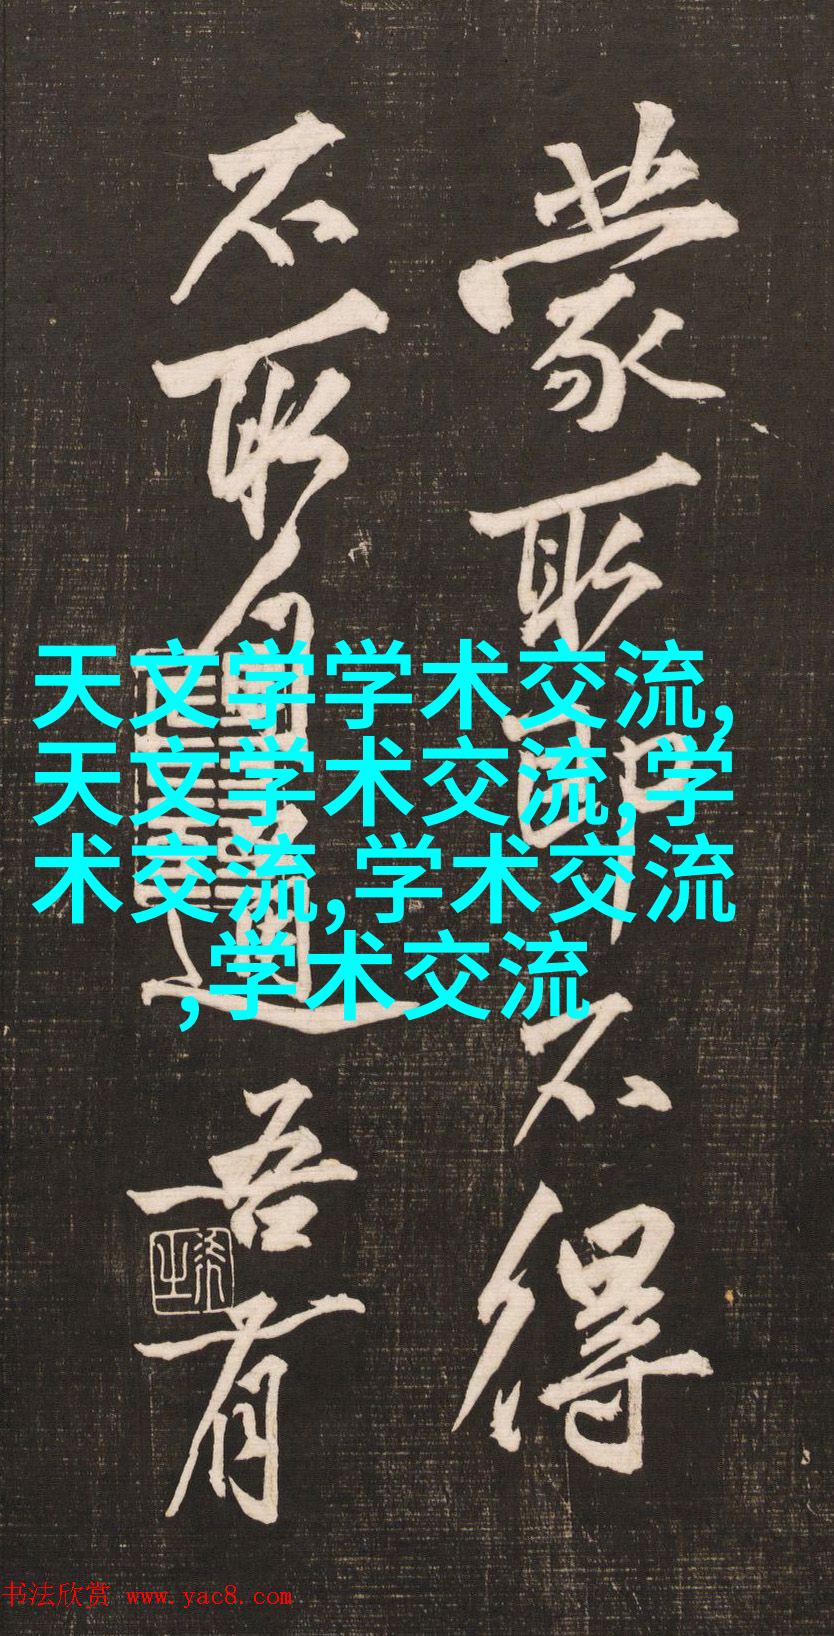 蒙不得
不吾有
天文学学术交流,
天文学术交流,学
术交流,学术交流
,学术交流
书法欣赏 www.yac8.com